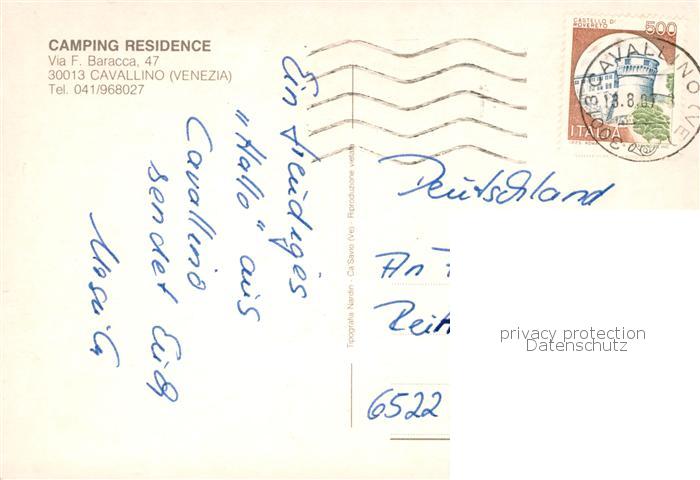 CAMPING RESIDENCE
Via F. Baracca, 47
30013 CAVALLINO (VENEZIA)
Tel. 041/968027
Ein freudiges
"Hallo" aus
Cavallino
sendet Euch
Tipografia Nardin - Ca'Savio (Ve) - Riproduzione vietata
CASTELLO DI
ROVERETO
500
ITALIA
30013 CAVALLINO (VE)
Deutschland
An
6522
privacy protection
Datenschutz